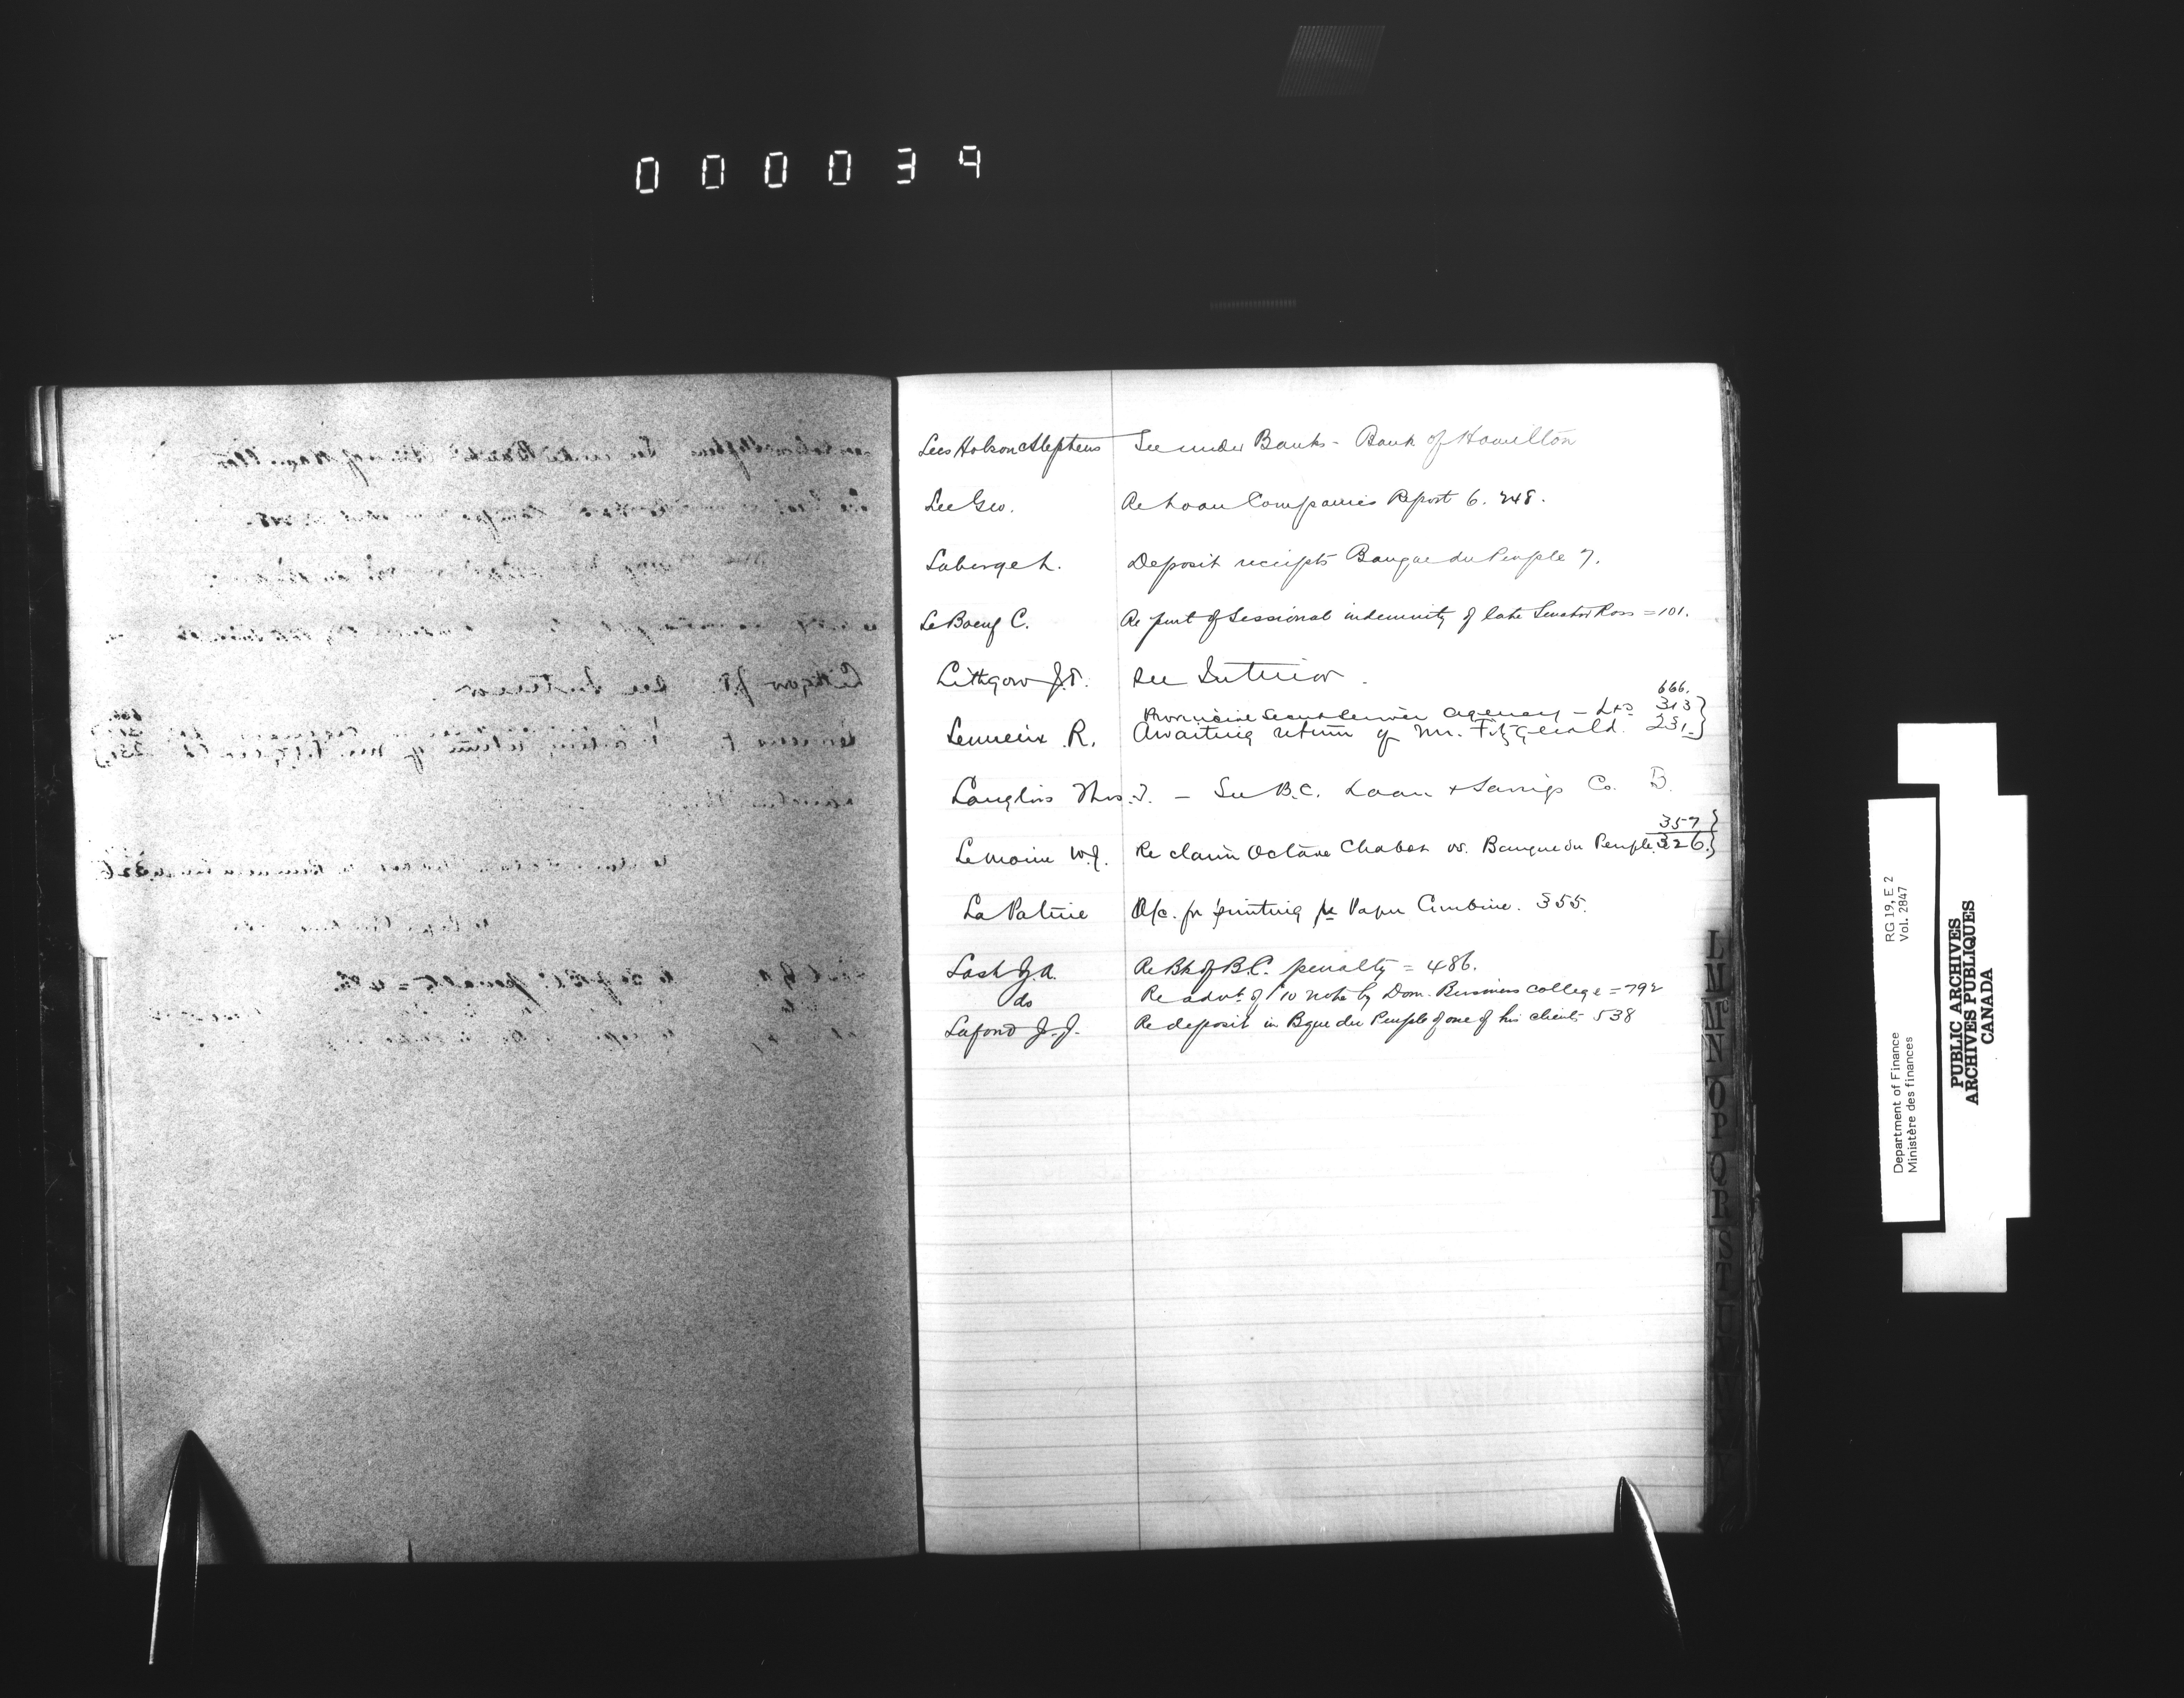 000039
Lees Hobson & Stephens See under Banks - Bank of Hamilton
Lee Geo. Re Loan Companies Report 6. 248.
Laberge L. Deposit receipts Banque du Peuple 7.
LeBoeuf C. Re part of Sessional indemnity of late Senator Ross = 101.
Lithgow J.T. See Interior.
666.
Provincial agency - 313
Lemieux R. Awaiting return of Mr. Fitzgerald. 231.
Langlois Thos. T. - See B.C. Loan & Savings Co. B.
357
Lemoine W.J. Re claim Octave Chabot vs. Banque du Peuple 326.
La Patrie A/c. for printing re Paper Combine. 355.
Lash J.A. Re Bk of B.C. penalty = 486.
do Re advt. of $10 note by Dom. Business College = 792
Lafond J.J. Re deposit in Bque du Peuple of one of his clients 538
L
M
Mc
N
O
P
Q
R
S
T
Department of Finance
Ministère des finances
RG 19, E 2
Vol. 2847
PUBLIC ARCHIVES
ARCHIVES PUBLIQUES
CANADA